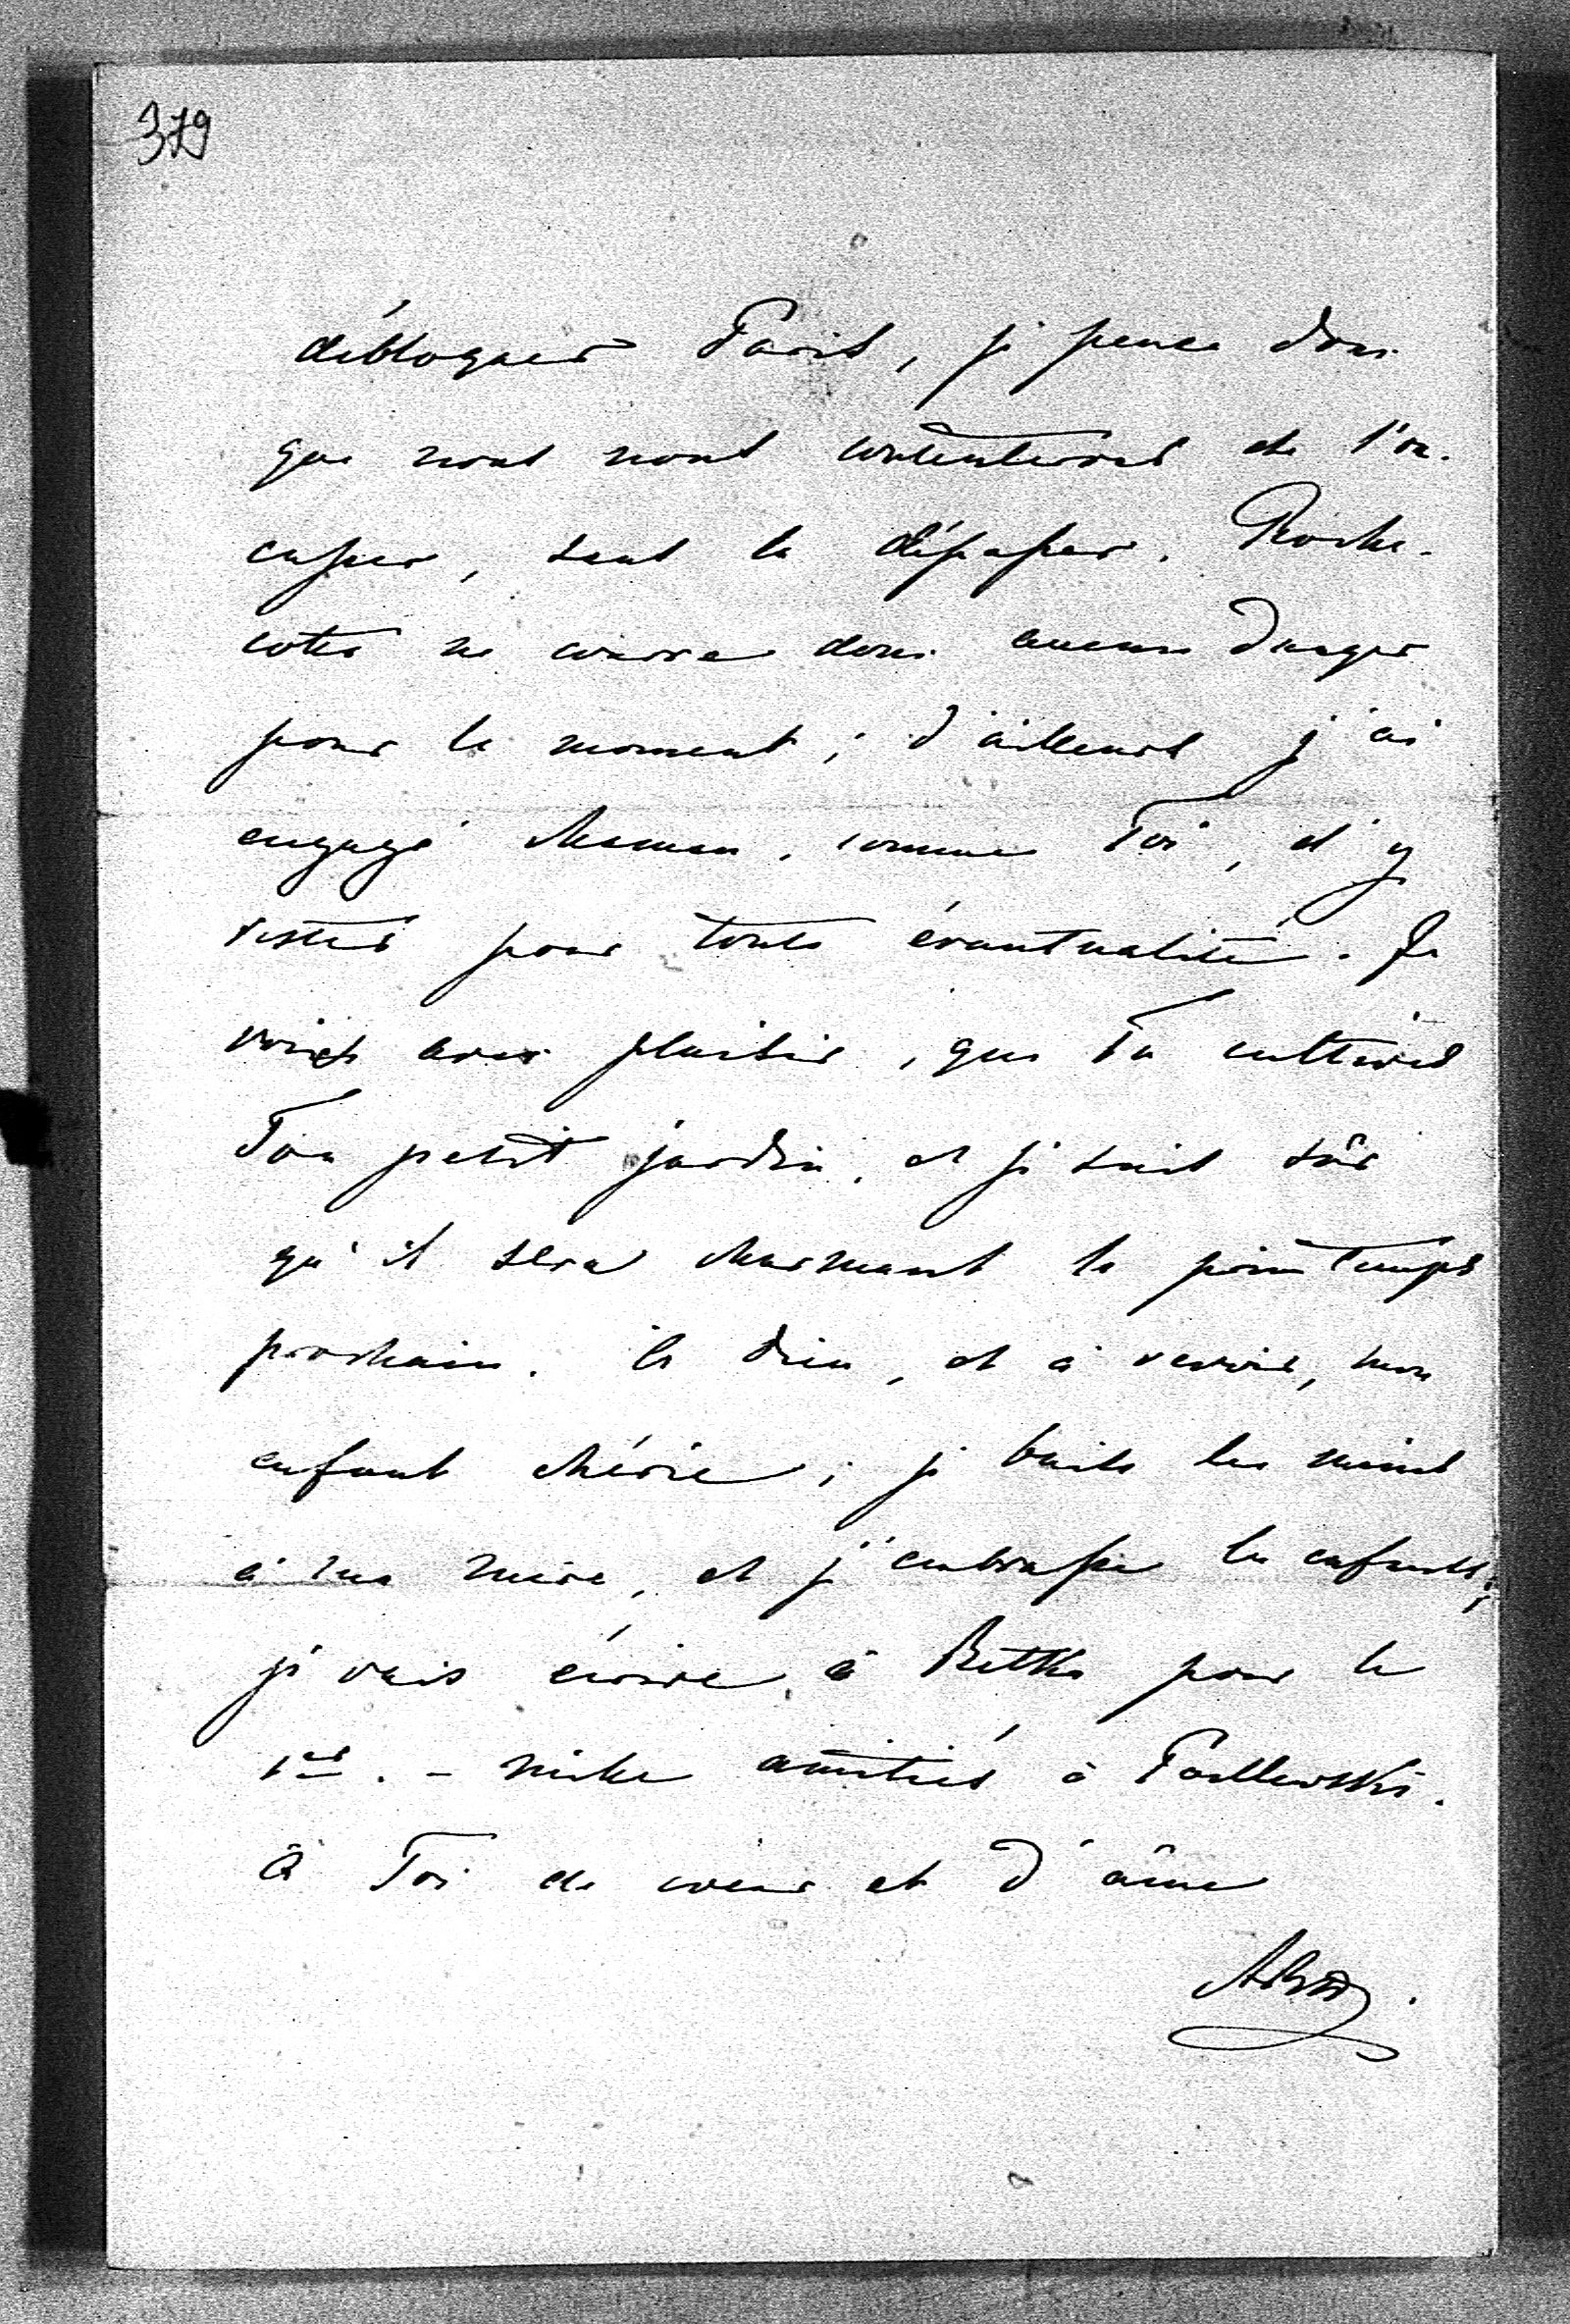 379
débloquer Paris, je pense donc
que nous nous contenterons de l'oc-
cuper, sans le dépasser. Roche-
cotte ne courre donc aucun danger
pour le moment; d'ailleurs j'ai
engagé Maman, comme Toi, d'y
rester pour toute évantualité. Je
vois avec plaisir, que Tu cultives
Ton petit jardin, et je suis sûr
qu'il sera charmant le printemps
prochain. À Dieu, et à revoir, mon
enfant chérie; je baise les mains
à ma mère, et j'embrasse les enfants;
je vais écrire à Betka pour le
1er. – mille amitiés à
À Toi de cœur et d'âme